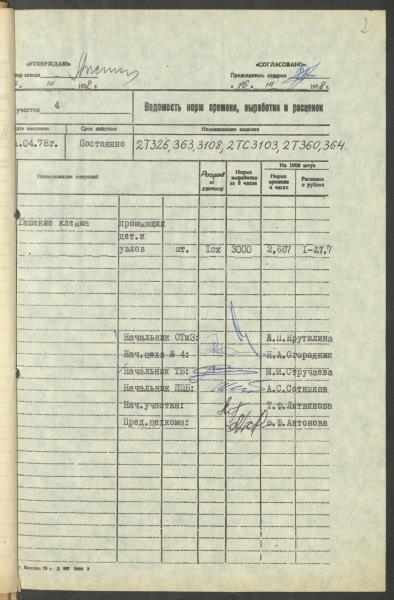 2
«УТВЕРЖДАЮ» «СОГЛАСОВАНО»
Председатель завкома
III 1978 г. «16» III 1978 г.
участок 4 Ведомость норм времени, выработки и расценок
введения Срок действия Наименование изделия
.04.78г. Постоянно 2Т326,363,3108, 2ТС3103, 2Т360,364.
Наименование операций Разряд и сетка Норма выработки за 8 часов На 1000 штук
Норма времени в часах Расценка в рублях
Гашение клейма промывщик
дет.и
узлов шт. Iсх 3000 2,667 I-27,7
Начальник ОТиЗ: А.П.Крутилина
Нач.цеха № 4: Н.А.Огородник
Начальник ТБ: М.М.Стручаева
Начальник ПЭБ: А.С.Сотников
Нач.участка: Т.Ф.Литвинова
Пред.цехкома: В.Ф.Антонова